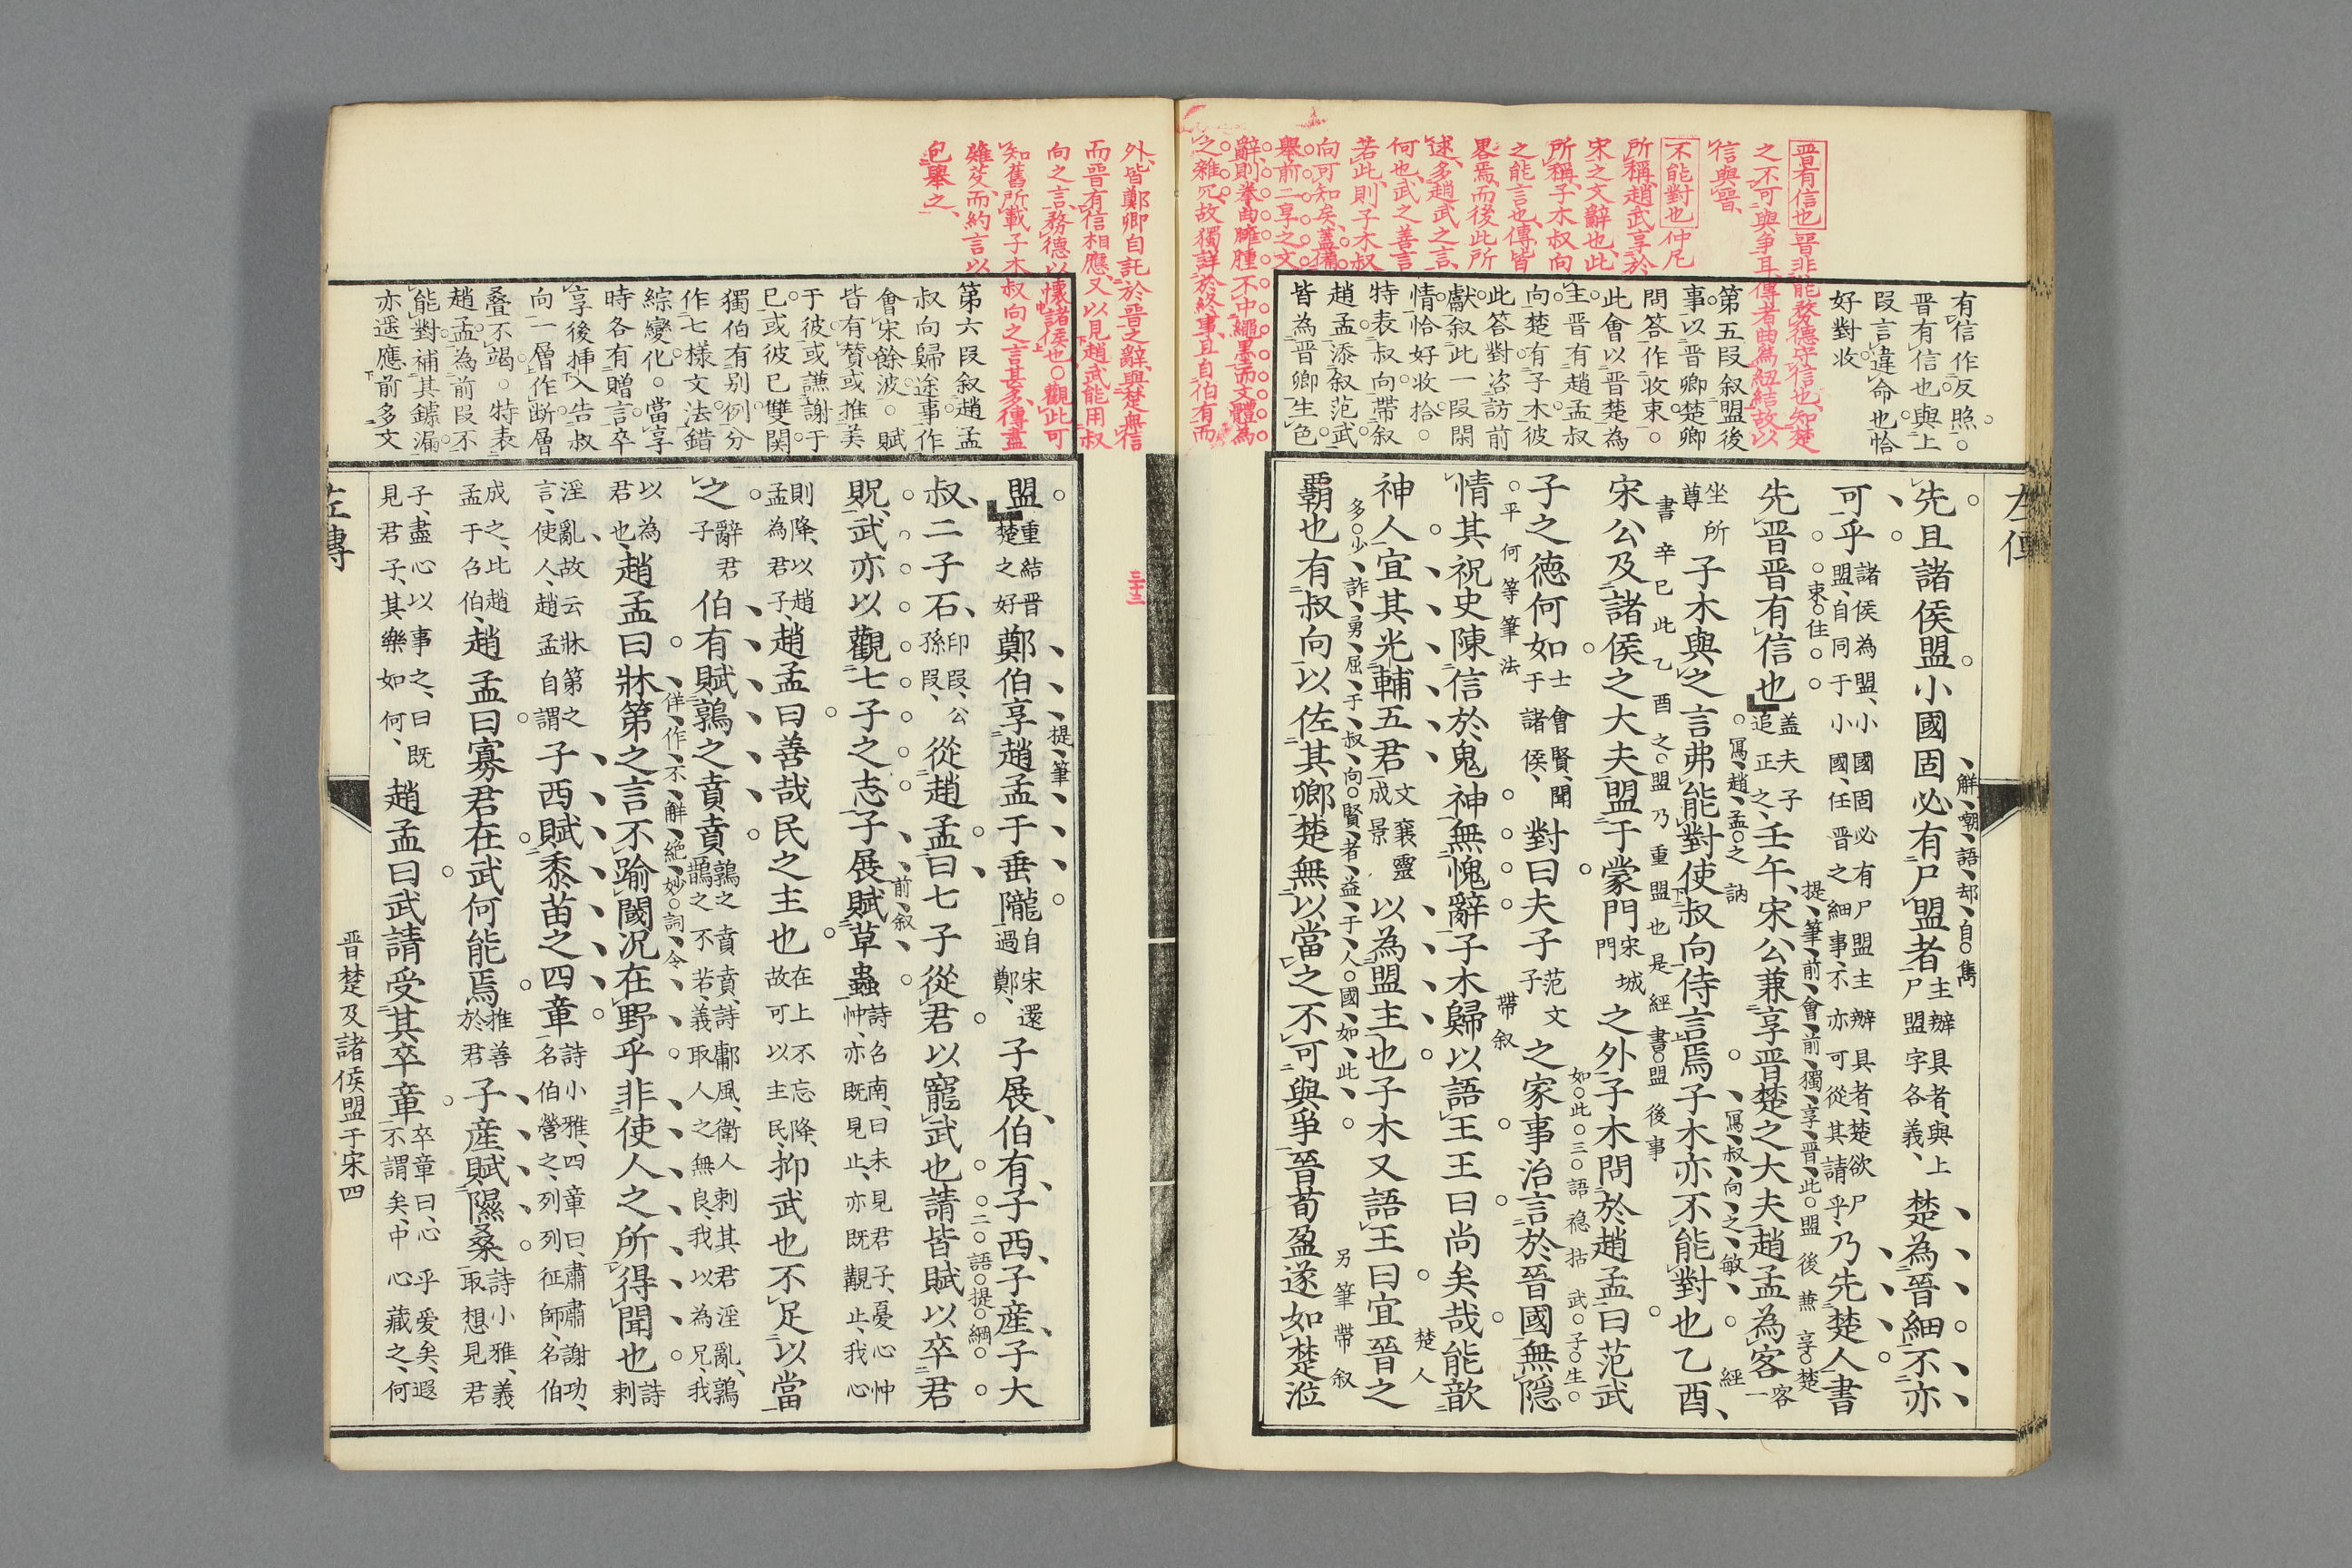 晉有信也晉非能務德守信也知楚
之不可與争耳傳者曲為紐結故以
信與晉
不能對也仲尼
所稱趙武享於
宋之文辭也此
所稱子木叔向
之能言也傳皆
畧焉而後此所
述多趙武之言
何也武之善言
若此則子木叔
向可知矣蓋備
舉前二享之文
辭則拳曲臃腫不中繩墨而文體為
之雜冗故獨詳於終事且自伯有而
有信作反照
晉有信也與上
段言違命也恰
好對收
第五段叙盟後
事以晉卿楚卿
問答作收束
此會以晉楚為
主晉有趙孟叔
向楚有子木彼
此答對咨訪前
獻叙此一段閑
情恰好收拾
特表叔向帶叙
趙孟添叙范武
皆為晉卿生色
左傳
先且諸侯盟小國固必有尸盟者主辦具者與上
尸盟字各義楚為晉細不亦
解嘲語却自雋
可乎諸侯為盟小國固必有尸盟主辦具者楚欲尸
盟自同于小國任晉之細事不亦可從其請乎乃先楚人書
先晉晉有信也蓋夫子
追正之壬午宋公兼享晉楚之大夫趙孟為客客一
提筆前會前獨享晉此盟後兼享楚
坐所
尊子木與之言弗能對使叔向侍言焉子木亦不能對也乙酉
寫趙孟之訥
寫叔向之敏
經
書辛巳此乙酉之盟乃重盟也是經書盟後事
宋公及諸侯之大夫盟于蒙門宋城
門之外子木問於趙孟曰范武
子之德何如士會賢聞
于諸侯對曰夫子范文
子之家事治言於晉國無隱
如此三語穩括武子生
平何等筆法
帶叙
情其祝史陳信於鬼神無愧辭子木歸以語王王曰尚矣哉能歆
楚人
神人宜其光輔五君文襄靈
成景以為盟主也子木又語王曰宜晉之
多少詐勇屈于叔向賢者益于人國如此
另筆帶叙
覇也有叔向以佐其卿楚無以當之不可與爭晉荀盈遂如楚涖
三十三
外皆鄭卿自託於晉之辭與楚無信
而晉有信相應又以見趙武能用叔
向之言務德以懷諸侯也觀此可
知舊所載子木叔向之言甚多傳盡
雖芟而約言以
包舉之
第六段叙趙孟
叔向歸途事作
會宋餘波賦
皆有賛或推美
于彼或謙謝于
已或彼已雙関
獨伯有别例分
作七様文法錯
綜變化當享
時各有贈言卒
享後挿入告叔
向一層作断層
叠不竭特表
趙孟為前段不
能對補其鏬漏
亦遥應前多文
盟重結晉
楚之好鄭伯享趙孟于垂隴自宋還
過鄭子展伯有子西子産子大
提筆
叔二子石印段公
孫段從趙孟曰七子從君以寵武也請皆賦以卒君
二語提綱
貺武亦以觀七子之志子展賦草蟲詩召南曰未見君子憂心忡
忡亦既見止亦既觀止我心
前叙
則降以趙
孟為君子趙孟曰善哉民之主也在上不忘降
故可以主民抑武也不足以當
之辭君
子伯有賦鶉之賁賁鶉之賁賁詩鄘風衛人刺其君淫亂鶉
鵲之不若義取人之無良我以為兄我
佯作不解絶妙詞令
以為
君也趙孟曰牀第之言不踰閾况在野乎非使人之所得聞也詩
刺
淫亂故云牀第之
言使人趙孟自謂子西賦黍苗之四章詩小雅四章曰肅肅謝功
名伯營之列列征師名伯
成之此趙
孟于召伯趙孟曰寡君在武何能焉推善
於君子産賦隰桑詩小雅義
取想見君
子盡心以事之曰既
見君子其樂如何趙孟曰武請受其卒章卒章曰心乎爱矣遐
不謂矣中心藏之何
左傳
晉楚及諸侯盟于宋四